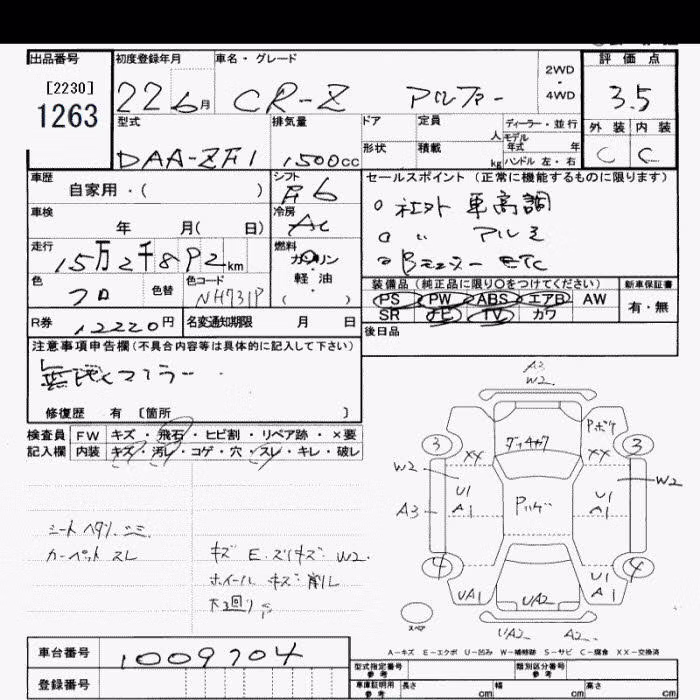 出品番号
[2230]
1263
初度登録年月
22 6月
車名・グレード
CR-Z アルファー
2WD
・
4WD
評価点
3.5
外装 内装
C C
型式
DAA-ZF1
排気量
1500cc
ドア
定員
人
ディーラー・並行
モデル
年式 年
形状
積載
kg
ハンドル 左・右
車歴
自家用・( )
シフト
F6
車検
年 月( 日)
冷房
AC
走行
15万2千892km
燃料
ガソリン
軽・油
( )
色
クロ
色替
色コード
NH731P
R券
12220円
名変通知期限 月 日
セールスポイント(正常に機能するものに限ります)
○社外 車高調
○ 〃 アルミ
○ ETC
装備品(純正品に限り○をつけてください)
新車保証書
PS PW ABS エアB AW
SR ナビ TV カワ
有・無
後日品
注意事項申告欄(不具合内容等は具体的に記入して下さい)
マフラー
修復歴 有 〔箇所 〕
検査員
記入欄
FW キズ・飛石・ヒビ割・リペア跡・×要
内装 キズ・汚レ・コゲ・穴・スレ・キレ・破レ
シートヘタリ、シミ
カーペット スレ
キズ E. スリキズ W2.
ホイール キズ 削レ
A3
W2
Pボケ
3
3
XX
XX
W2
W2
U1
A1
U1
A1
A3
4
4
UA1
U1
A1
UA2
UA2 A2
スペア
A-キズ E-エクボ U-凹み W-補修跡 S-サビ C-腐食 XX-交換済
車台番号
1009704
登録番号
型式指定番号
参考
類別区分番号
参考
車庫証明用
参考
長さ cm
幅 cm
高さ cm